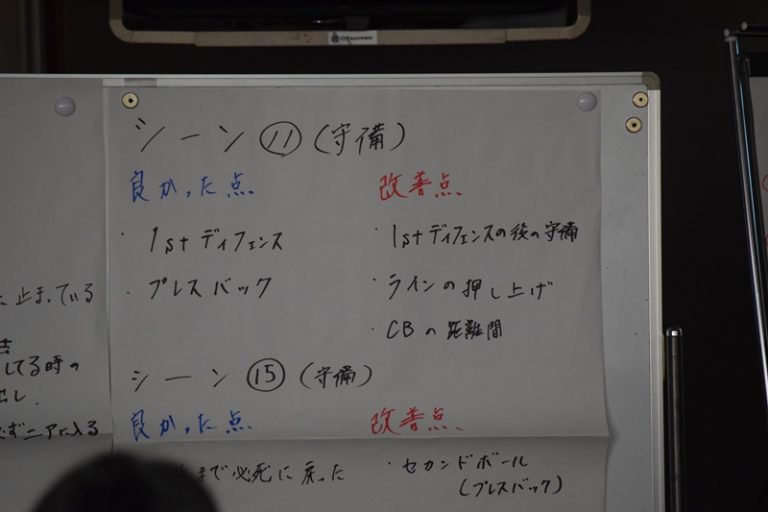 シーン ⑪ (守備)
良かった点
・1stディフェンス
・プレスバック
改善点
・1stディフェンスの後の守備
・ラインの押し上げ
・CBの距離間
シーン ⑮ (守備)
良かった点
まで必死に戻った
改善点
・セカンドボール
(プレスバック)
に止まっている
してる時の
出し.
ニアに入る